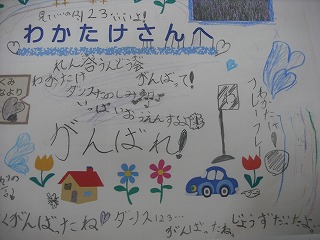 見ていいのん 123・・・いいよ!
わかたけさんへ
れん合うんどう会
わかたけ がんばって!
ダンスたのしみ
いっぱいおうえんするよ
がんばれ!
わかたけ!
フレーフレー
くみ
なより
がんばったね♡ ダンス123・・・
がんばったね。 じょうずだったよ。